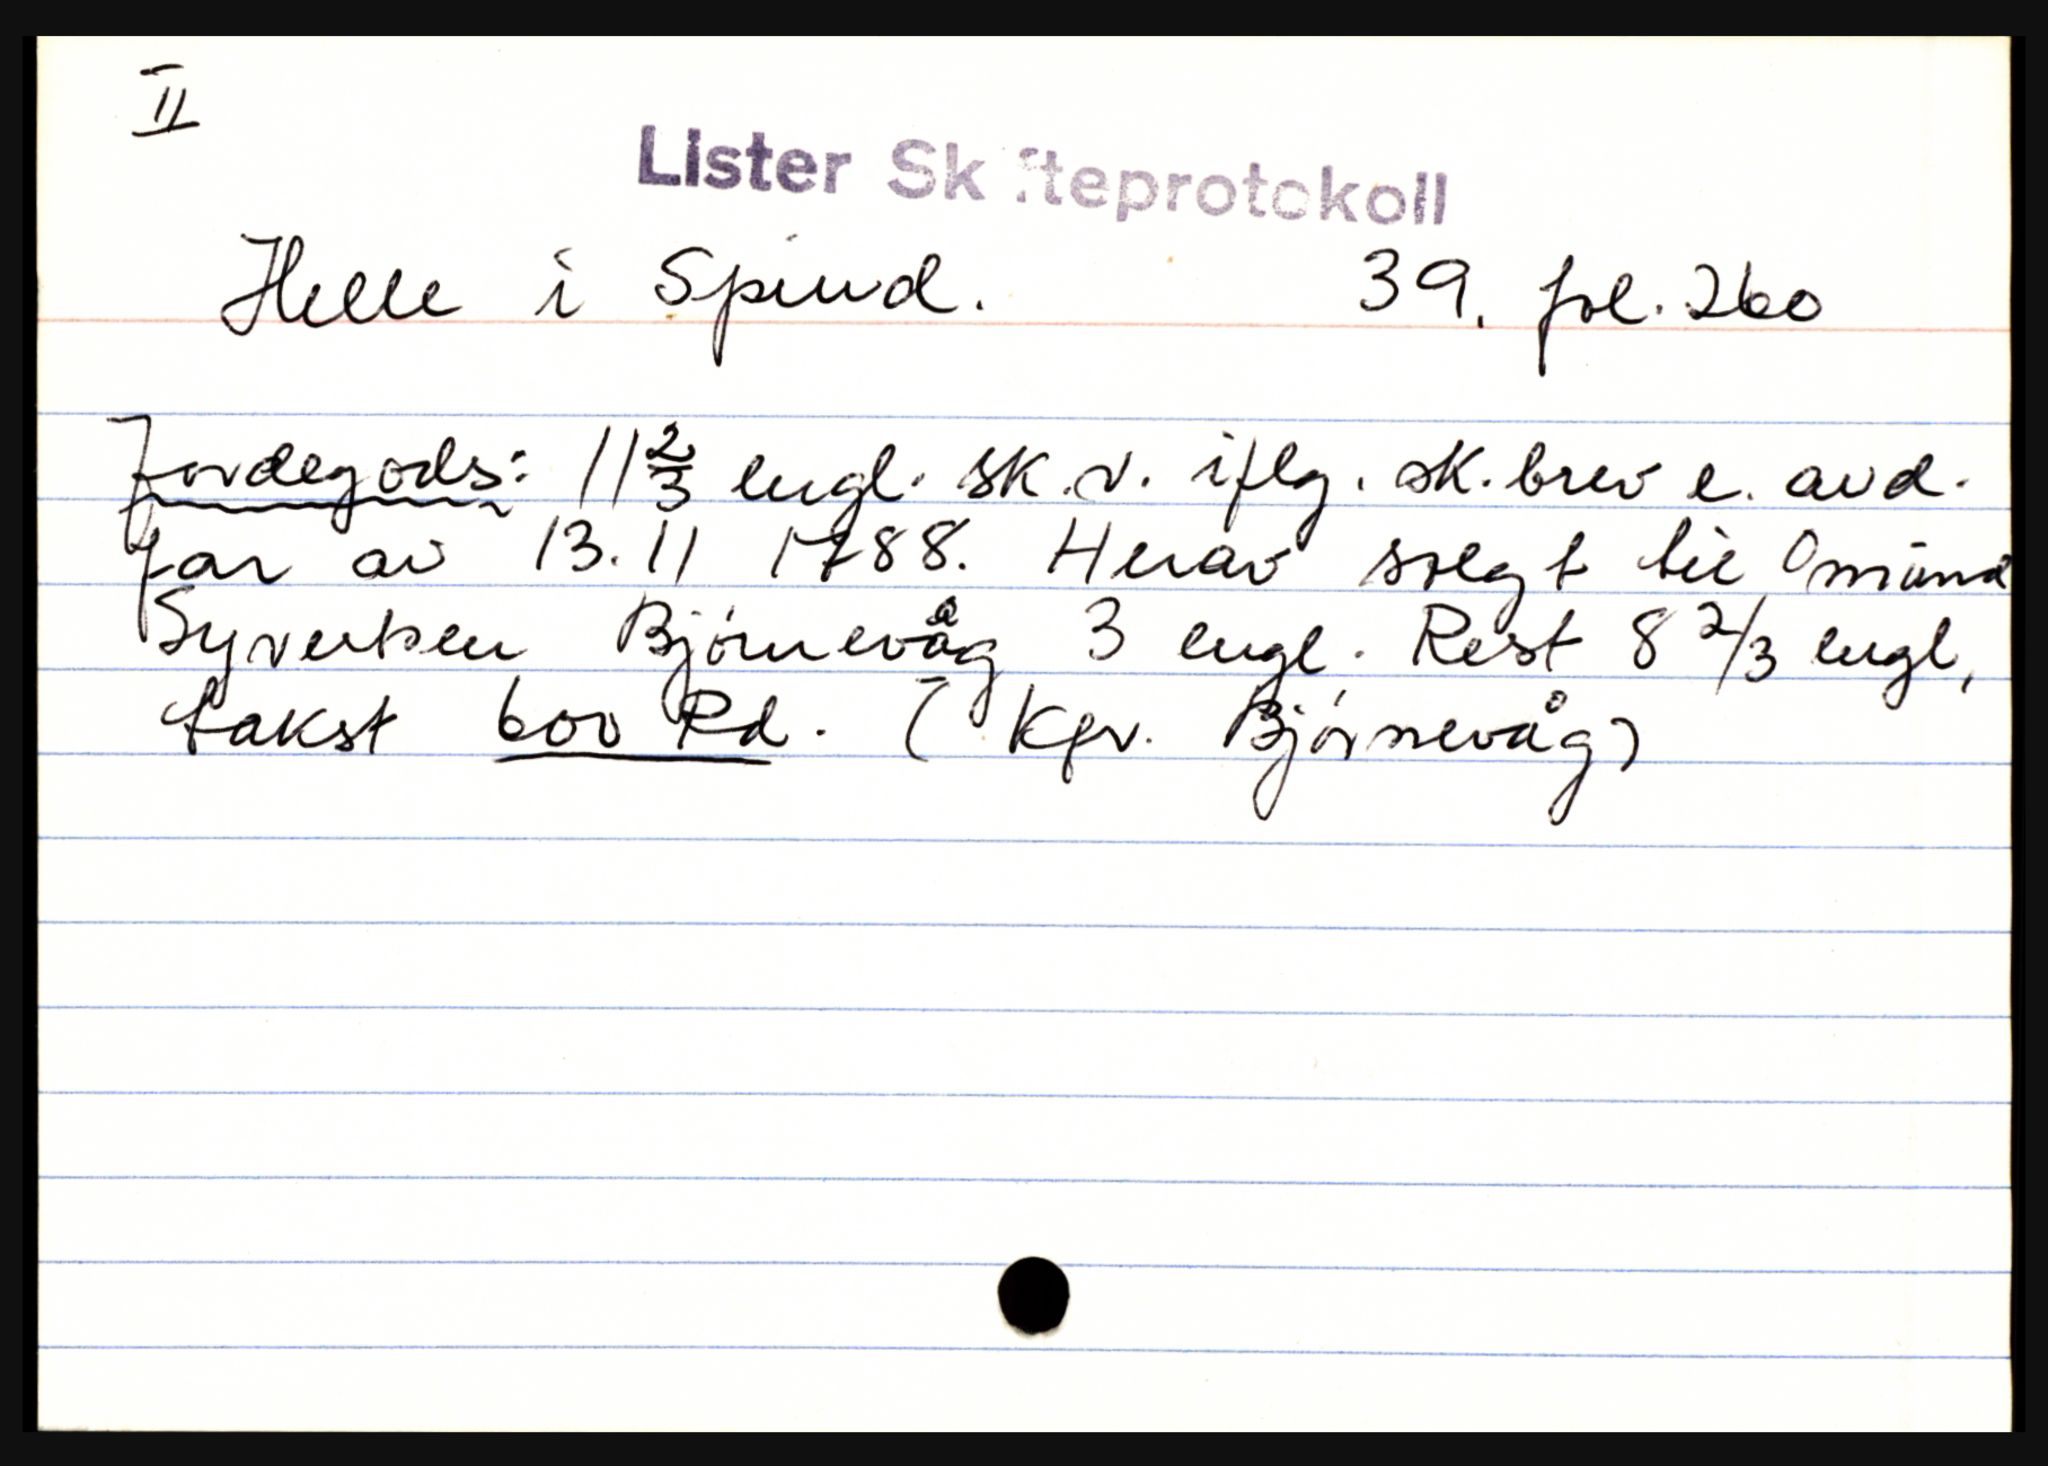 II
Lister Skifteprotokoll
Helle i Spind. 39. fol. 260
Jordegods: 11 2/3 engl. sk.v. iflg. sk.brev e. avd.
far av 13.11 1788. Herav solgt til Omund
Syvertsen Bjørnevåg 3 engl. Rest 8 2/3 engl,
takst 600 Rd. (Kfr. Bjørnevåg)